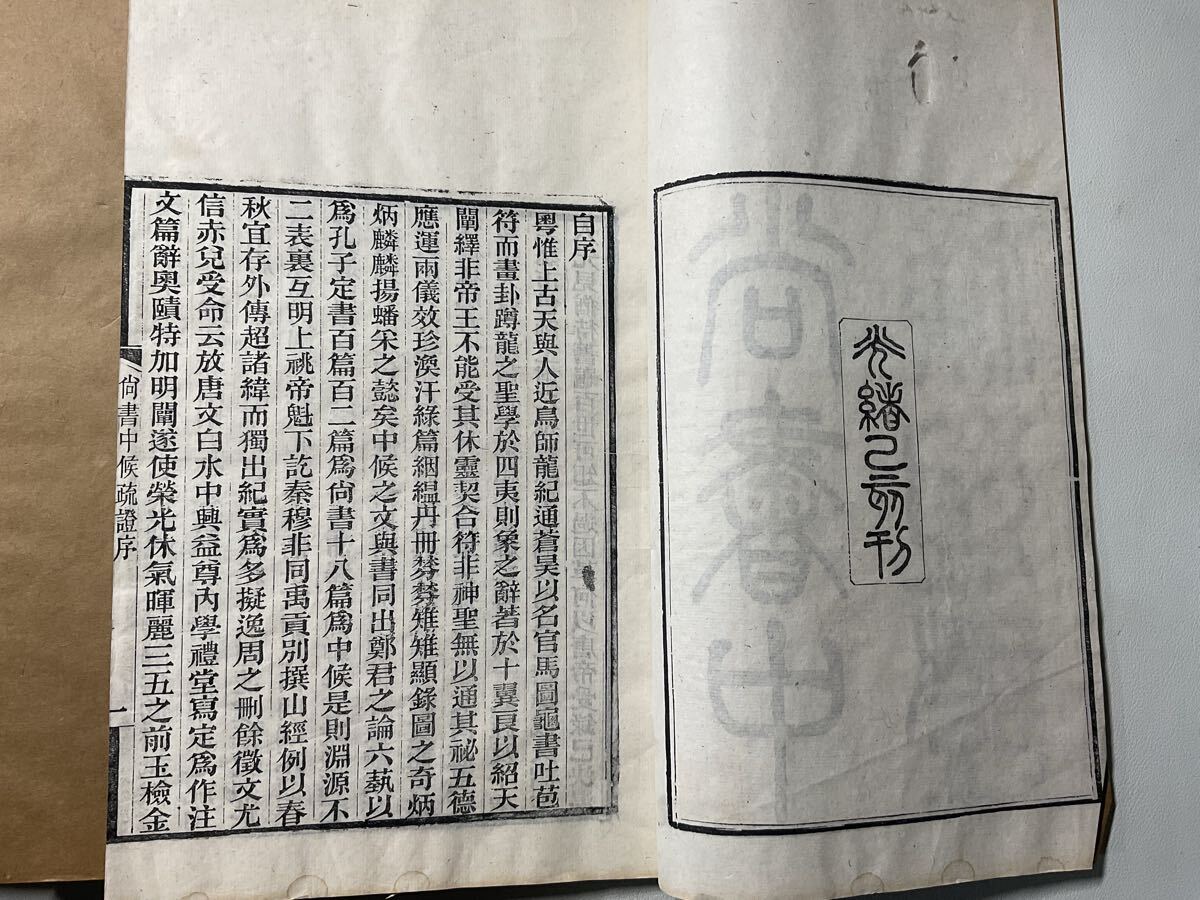 光緒己亥刊
自序
粵惟上古天與人近鳥師龍紀通蒼昊以名官馬圖龜書吐苞
符而畫卦蹲龍之聖學於四夷則象之辭著於十翼良以紹天
闡繹非帝王不能受其休靈契合符非神聖無以通其祕五德
應運兩儀效珍渙汗綠篇絪縕丹冊棼棼雉雉顯錄圖之奇炳
炳麟麟揚蟠采之懿矣中候之文與書同出鄭君之論六藝以
爲孔子定書百篇百二篇爲尙書十八篇爲中候是則淵源不
二表裏互明上祧帝魁下訖秦穆非同禹貢別撰山經例以春
秋宜存外傳超諸緯而獨出紀實爲多擬逸周之刪餘徵文尤
信赤兒受命云放唐文白水中興益尊內學禮堂寫定爲作注
文篇辭奧賾特加明闡遂使榮光休氣暉麗三五之前玉檢金
尙書中候疏證序
一